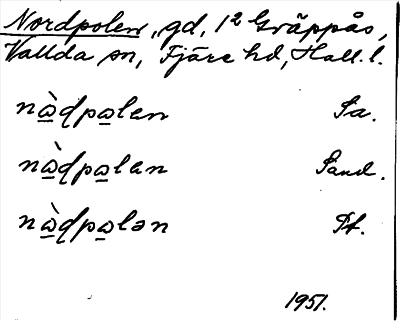 Nordpolen, gd, 1² Gräppås,
Vallda sn, Fjäre hd, Hall. l.
nὰ̱ɖpa̱len Sa.
nὰ̱ɖpa̱lan Sand.
nὰ̱ɖpa̱lən Pf.
1951.